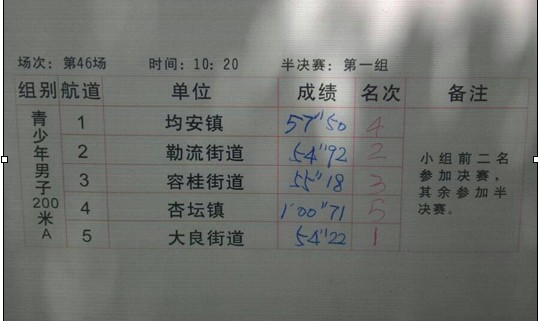 场次：第46场 时间：10：20 半决赛：第一组
组别 航道 单位 成绩 名次 备注
青少年男子200米A
1 均安镇 57"50 4
2 勒流街道 54"92 2
3 容桂街道 55"18 3
4 杏坛镇 1'00"71 5
5 大良街道 54"22 1
小组前二名
参加决赛，
其余参加半
决赛。